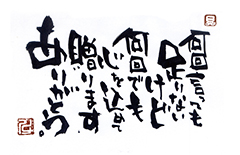 何回言っても
足りない
けど
何回でも
心を込めて
贈ります
ありがとう